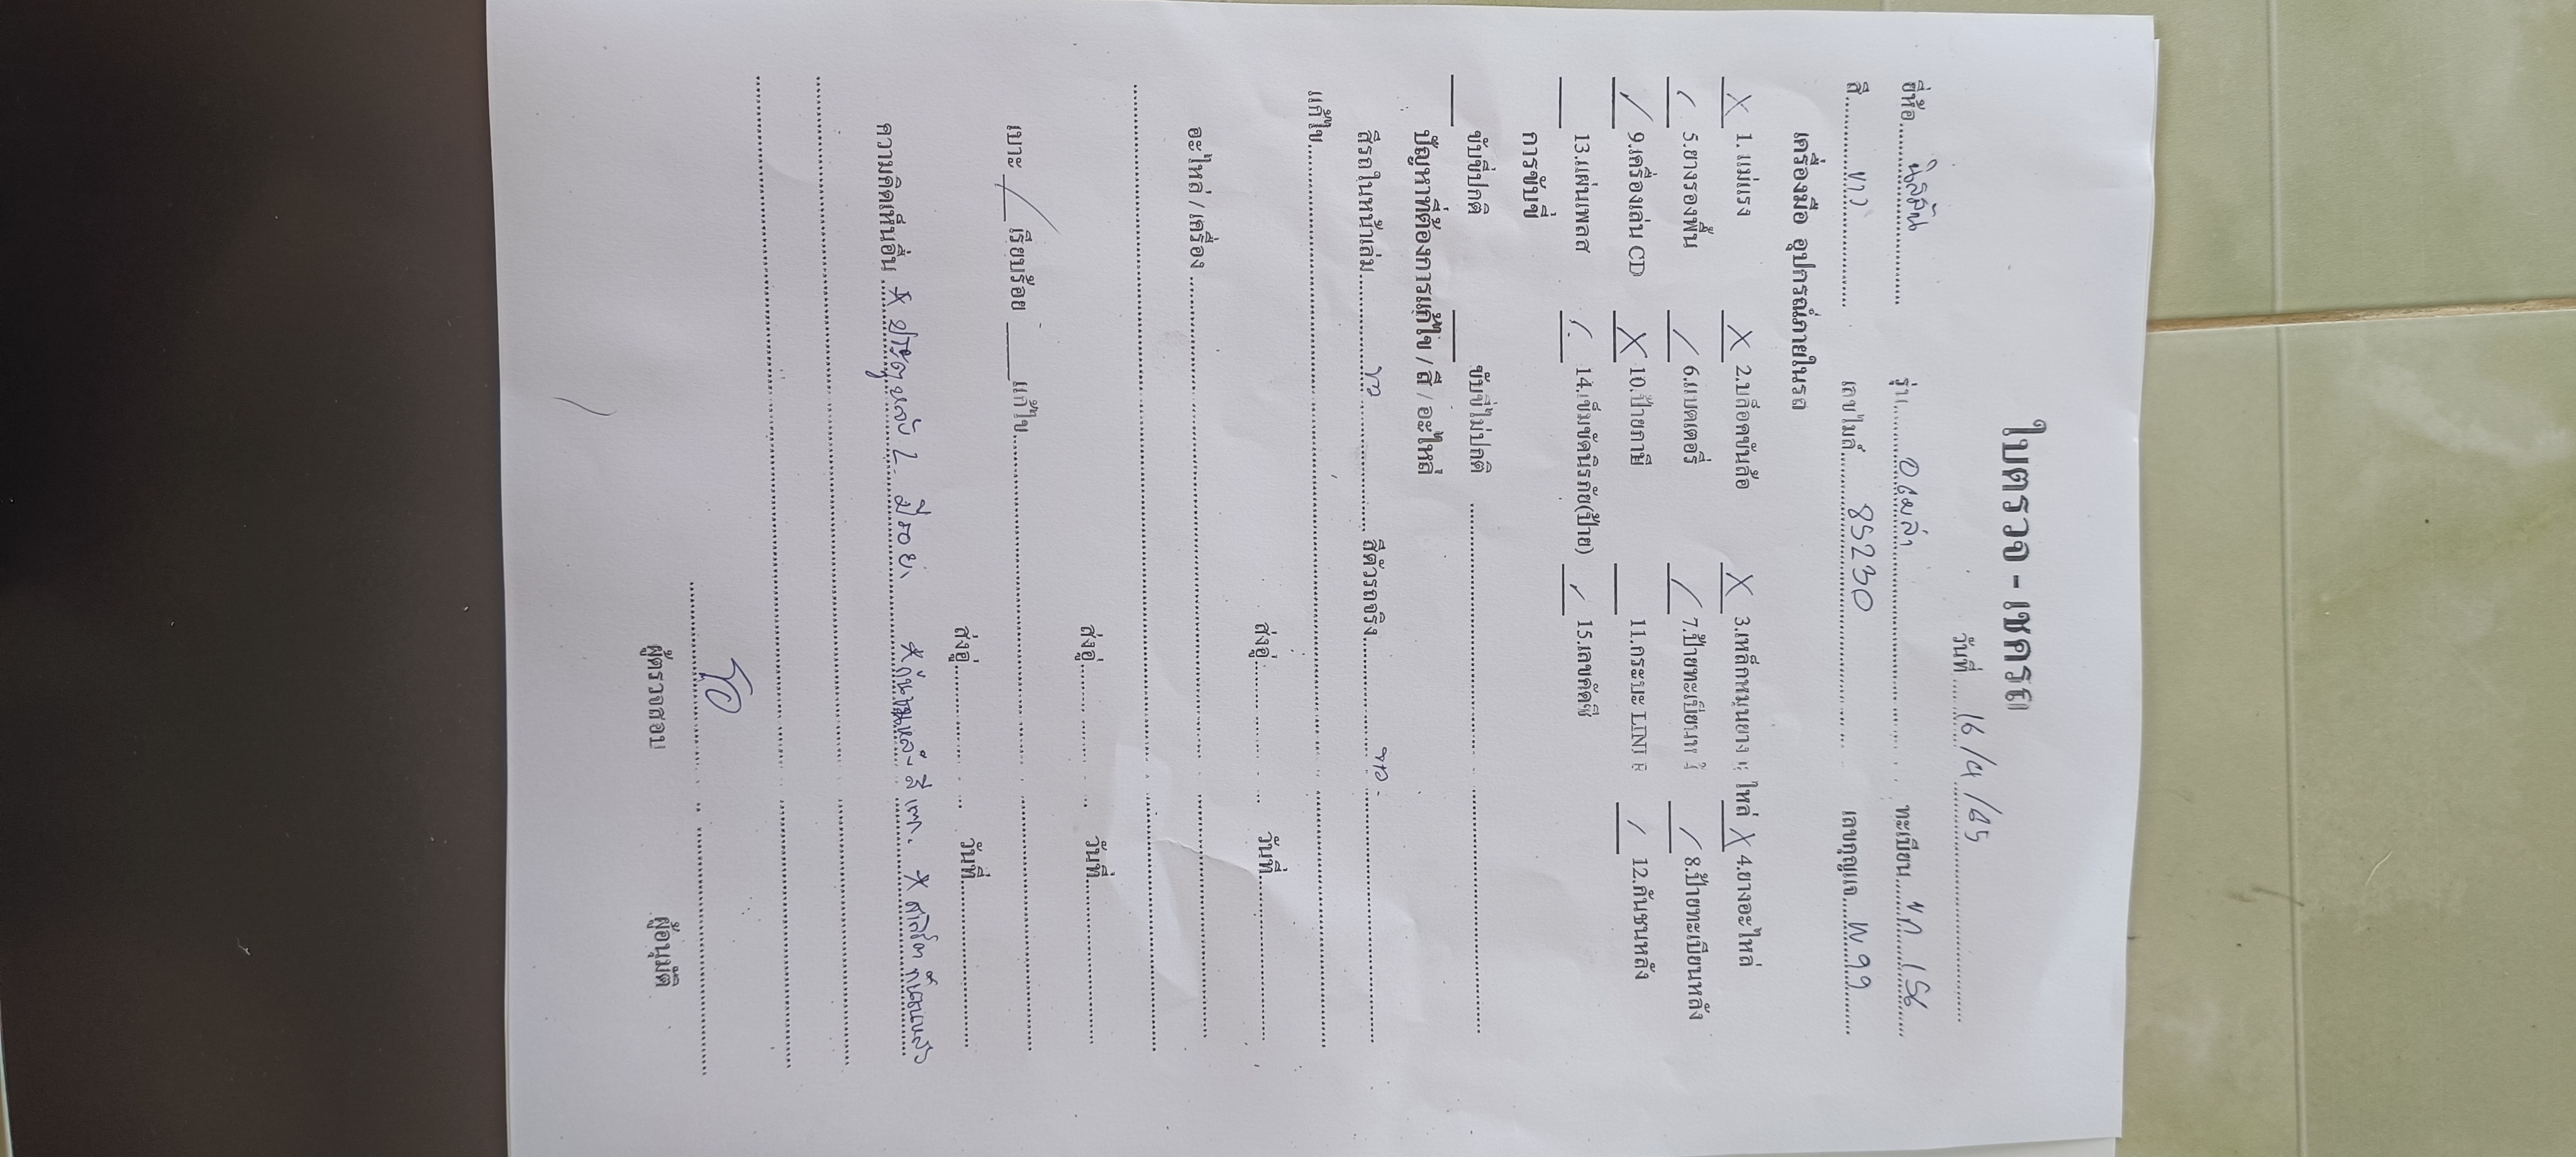 ใบตรวจ - เชครถ
วันที่ 16/4/65
ยี่ห้อ นิสสัน รุ่น อเมล่า ทะเบียน ขก 156
สี ขาว เลขไมล์ 85230 เลขกุญแจ W99
เครื่องมือ อุปกรณ์ภายในรถ
X 1. แม่แรง X 2.บล็อคขันล้อ X 3.เหล็กหมุนยาง ะไหล่ X 4.ยางอะไหล่
/ 5.ยางรองพื้น / 6.แบตเตอรี่ / 7.ป้ายทะเบียนห / 8.ป้ายทะเบียนหลัง
/ 9.เครื่องเล่น CD X 10.ป้ายภาษี 11.กระบะ LINE / 12.กันชนหลัง
13.แผ่นเพลส / 14.เข็มขัดนิรภัย(ป้าย) / 15.เลขคัดซี
การขับขี่
ขับขี่ปกติ ขับขี่ไม่ปกติ
ปัญหาที่ต้องการแก้ไข / สี / อะไหล่
สีรถในหน้าเล่ม ขาว สีตัวรถจริง ขาว
แก้ไข
ส่งอู่ วันที่
อะไหล่ / เครื่อง
ส่งอู่ วันที่
เบาะ / เรียบร้อย แก้ไข
ส่งอู่ วันที่
ความคิดเห็นอื่น * ประตูหลัง L มีรอย * กันชนหลัง สีแตก *
ผู้ตรวจสอบ ผู้อนุมัติ